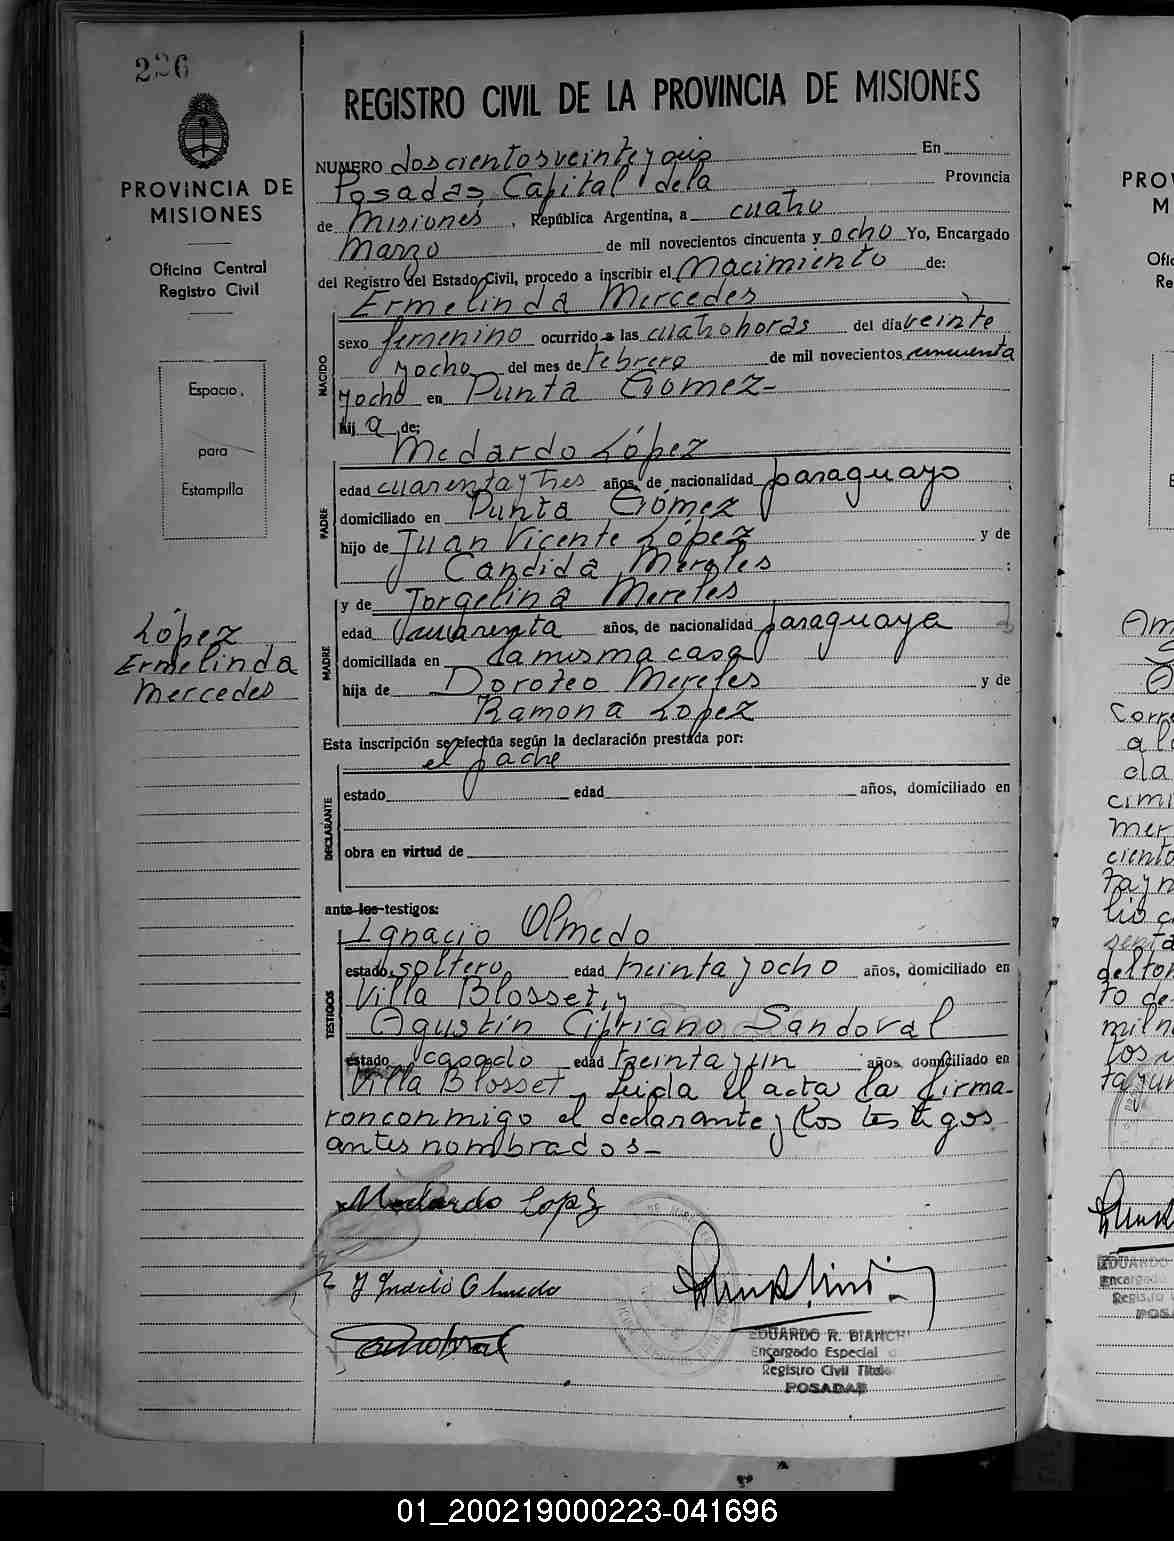 226
PROVINCIA DE
MISIONES
Oficina Central
Registro Civil
Espacio
para
Estampilla
López
Ermelinda
Mercedes
REGISTRO CIVIL DE LA PROVINCIA DE MISIONES
NUMERO doscientos veinte y seis En
Posadas, Capital de la Provincia
de Misiones, República Argentina, a cuatro
Marzo de mil novecientos cincuenta y ocho Yo, Encargado
del Registro del Estado Civil, procedo a inscribir el Nacimiento de:
Ermelinda Mercedes
NACIDO
sexo femenino ocurrido a las cuatro horas del día veinte
y ocho del mes de febrero de mil novecientos cincuenta
y ocho en Punta Gómez-
hij a de:
Medardo López
PADRE
edad cuarenta y tres años, de nacionalidad paraguayo ;
domiciliado en Punta Gómez
hijo de Juan Vicente López y de
Candida Mereles ;
y de Jorgelina Mereles
MADRE
edad cuarenta años, de nacionalidad paraguaya
domiciliada en la misma casa
hija de Doroteo Mereles y de
Ramona López
Esta inscripción se efectúa según la declaración prestada por:
el padre
DECLARANTE
estado edad años, domiciliado en
obra en virtud de
ante los testigos:
Ignacio Olmedo
TESTIGOS
estado soltero, edad treinta y ocho años, domiciliado en
Villa Blosset, y
Agustín Cipriano Sandoval
estado casado edad treinta y un años, domiciliado en
Villa Blosset Leida el acta la firma-
ron conmigo el declarante y los testigos
antes nombrados-
Medardo Lopez
Olmedo
Sandoval
EDUARDO R. BIANCHI
Encargado Especial
Registro Civil Titular
POSADAS
01_200219000223-041696